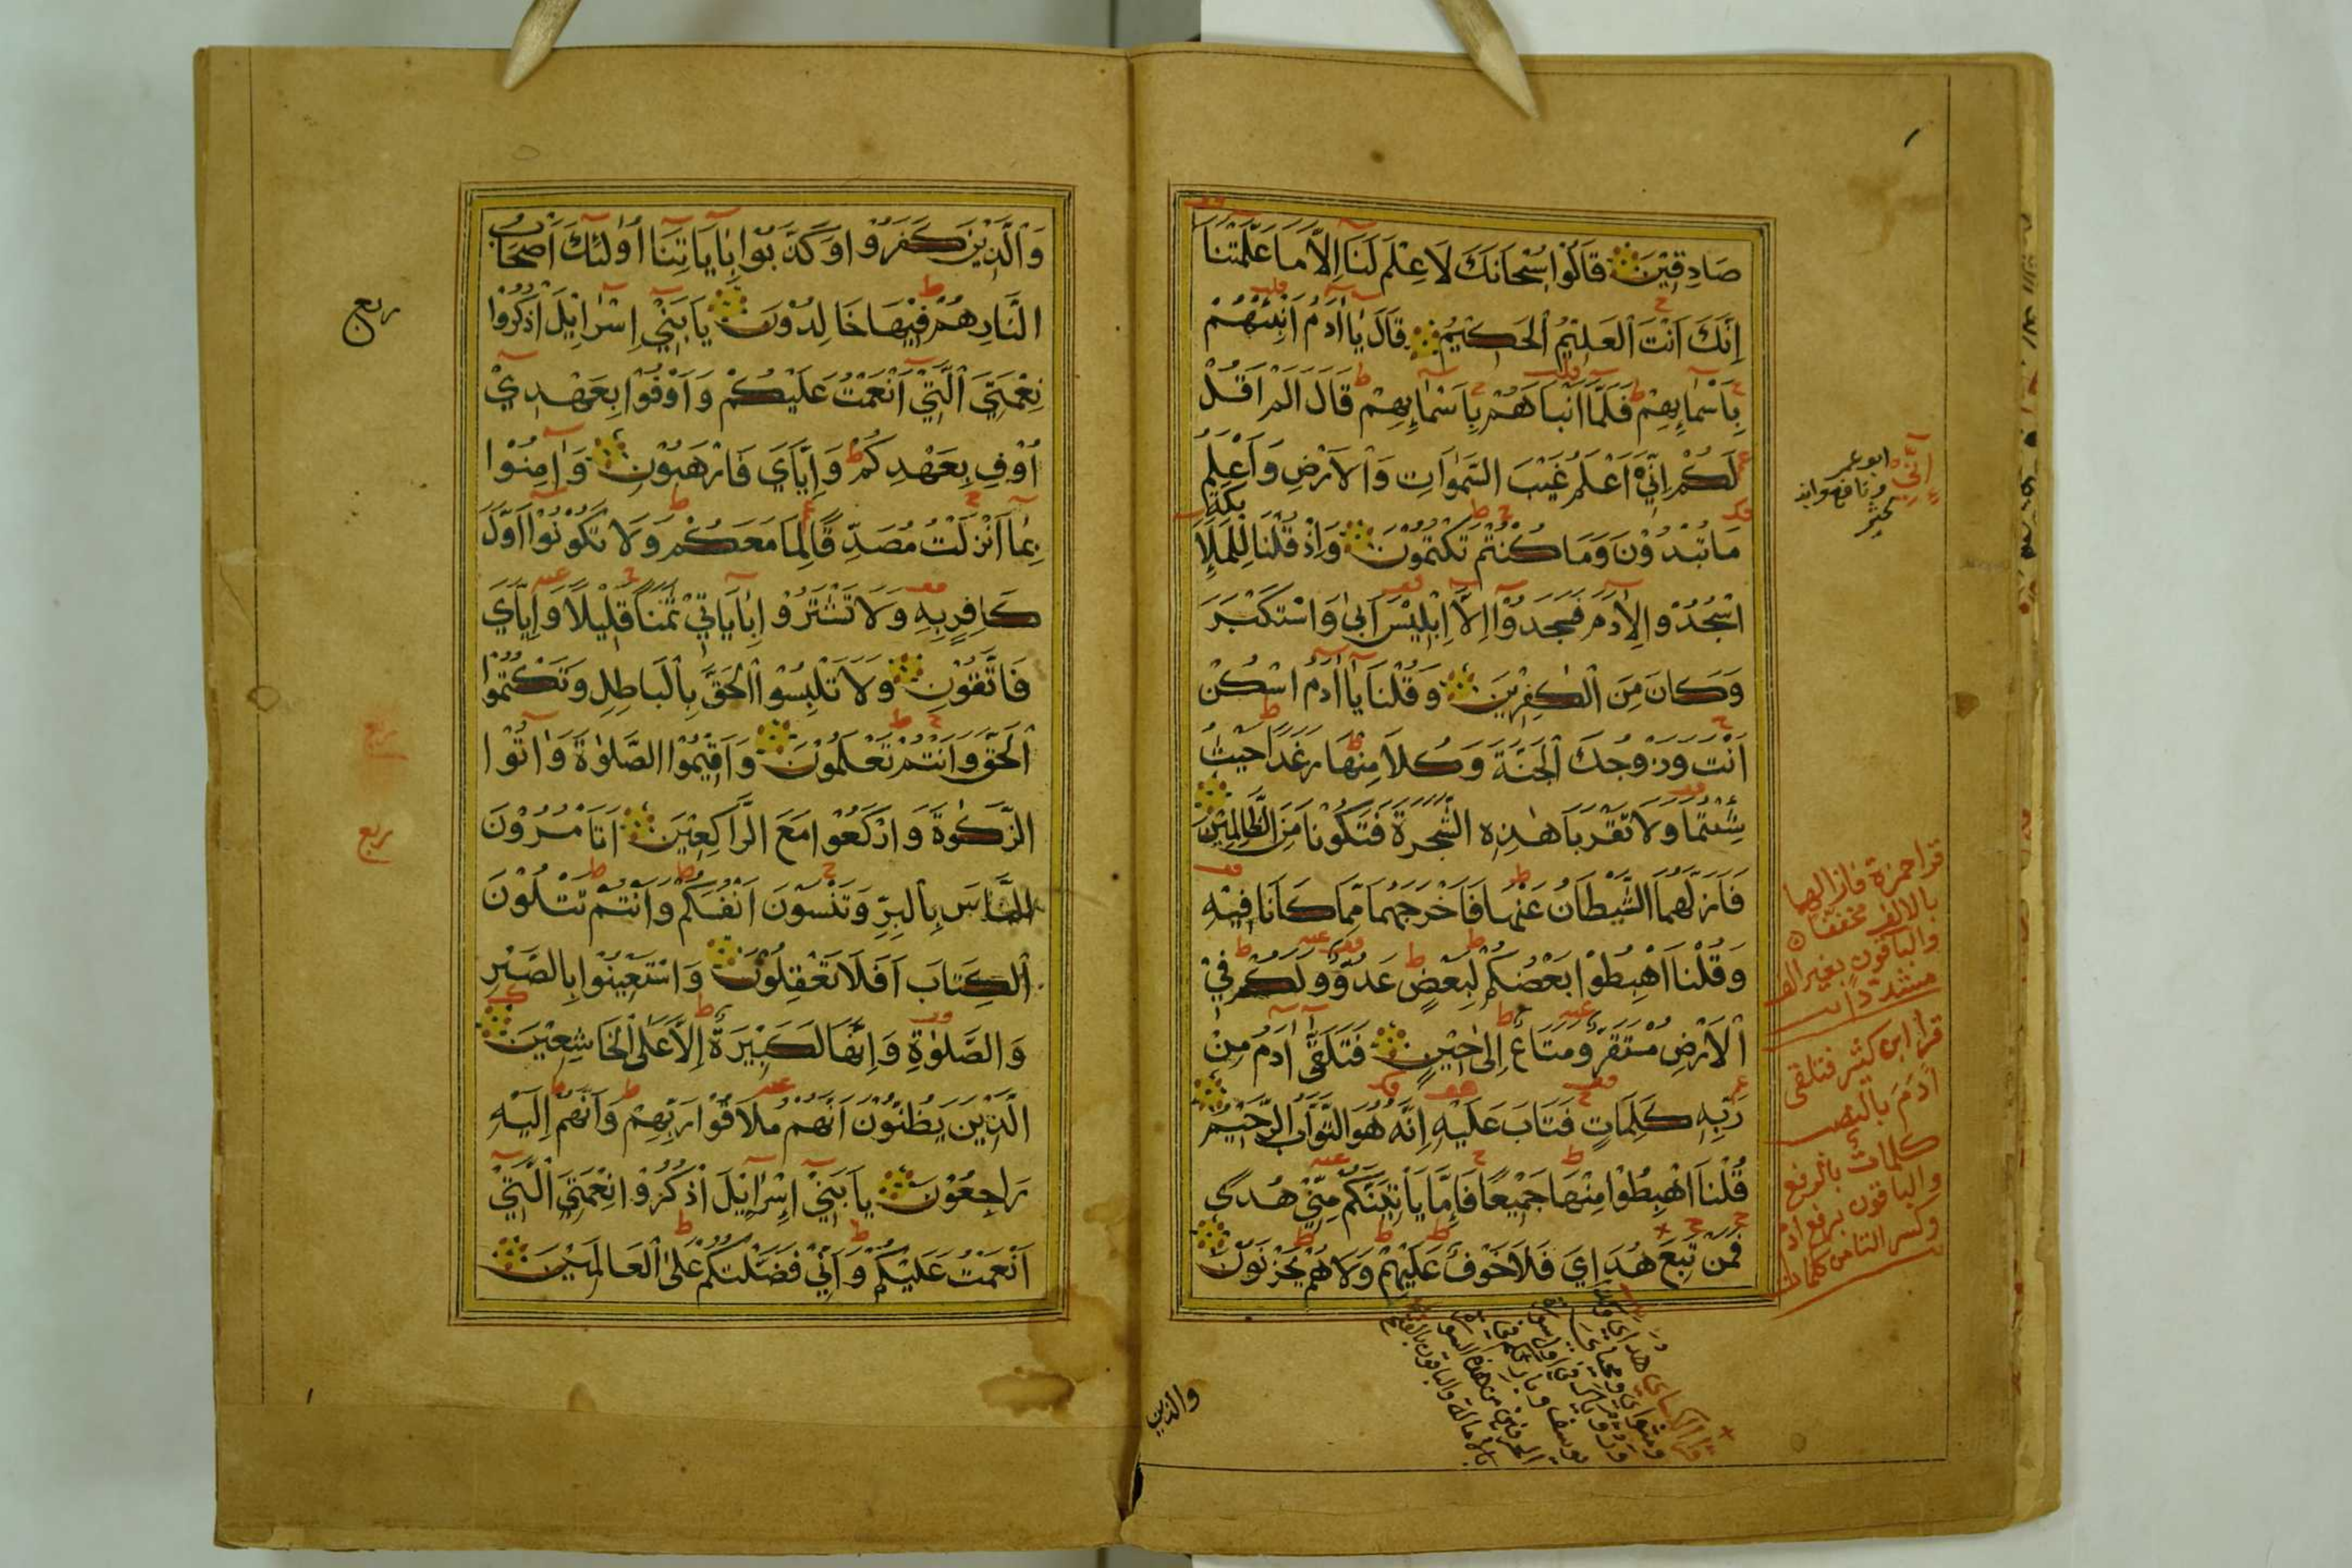 صَادِقِيْنَ قَالُوْا سُبْحَانَكَ لَا عِلْمَ لَنَا اِلَّا مَا عَلَّمْتَنَا
اِنَّكَ اَنْتَ الْعَلِيْمُ الْحَكِيْمُ قَالَ يَا اٰدَمُ اَنْبِئْهُمْ
بِاَسْمَايِهِمْ فَلَمَّا اَنْبَاَهُمْ بِاَسْمَايِهِمْ قَالَ اَلَمْ اَقُلْ
لَكُمْ اِنِّيْ اَعْلَمُ غَيْبَ السَّمٰوَاتِ وَالْاَرْضِ وَاَعْلَمُ
مَا تُبْدُوْنَ وَمَا كُنْتُمْ تَكْتُمُوْنَ وَاِذْ قُلْنَا لِلْمَلٰٓئِكَةِ
اسْجُدُوْا لِاٰدَمَ فَسَجَدُوْا اِلَّا اِبْلِيْسَ اَبٰى وَاسْتَكْبَرَ
وَكَانَ مِنَ الْكٰفِرِيْنَ وَقُلْنَا يَا اٰدَمُ اسْكُنْ
اَنْتَ وَزَوْجُكَ الْجَنَّةَ وَكُلَا مِنْهَا رَغَدًا حَيْثُ
شِئْتُمَا وَلَا تَقْرَبَا هٰذِهِ الشَّجَرَةَ فَتَكُوْنَا مِنَ الظَّالِمِيْنَ
فَاَزَلَّهُمَا الشَّيْطَانُ عَنْهَا فَاَخْرَجَهُمَا مِمَّا كَانَا فِيْهِ
وَقُلْنَا اهْبِطُوْا بَعْضُكُمْ لِبَعْضٍ عَدُوٌّ وَلَكُمْ فِيْ
الْاَرْضِ مُسْتَقَرٌّ وَمَتَاعٌ اِلٰى حِيْنٍ فَتَلَقّٰى اٰدَمُ مِنْ
رَبِّهِ كَلِمَاتٍ فَتَابَ عَلَيْهِ اِنَّهُ هُوَ التَّوَّابُ الرَّحِيْمُ
قُلْنَا اهْبِطُوْا مِنْهَا جَمِيْعًا فَاِمَّا يَاْتِيَنَّكُمْ مِنِّيْ هُدًى
فَمَنْ تَبِعَ هُدَايَ فَلَا خَوْفٌ عَلَيْهِمْ وَلَا هُمْ يَحْزَنُوْنَ
اِنِّيَ ابو عمر
ونافع وابن
كثير
قرا حمزة فازالهما
بالالف مخففا
والباقون بغير الف
مشددا
قرأ ابن كثير فتلقى
اٰدَمَ بالنصب
كلماتٌ بالرفع
والباقون برفع ادم
وكسر التاء من كلمات
والذين
وَالَّذِيْنَ كَفَرُوْا وَكَذَّبُوْا بِاٰيَاتِنَا اُولٰئِكَ اَصْحَابُ
النَّارِ هُمْ فِيْهَا خَالِدُوْنَ يَا بَنِيْ اِسْرَائِيْلَ اذْكُرُوْا
نِعْمَتِيَ الَّتِيْ اَنْعَمْتُ عَلَيْكُمْ وَاَوْفُوْا بِعَهْدِيْ
اُوْفِ بِعَهْدِكُمْ وَاِيَّايَ فَارْهَبُوْنِ وَاٰمِنُوْا
بِمَا اَنْزَلْتُ مُصَدِّقًا لِمَا مَعَكُمْ وَلَا تَكُوْنُوْا اَوَّلَ
كَافِرٍ بِهِ وَلَا تَشْتَرُوْا بِاٰيَاتِيْ ثَمَنًا قَلِيْلًا وَاِيَّايَ
فَاتَّقُوْنِ وَلَا تَلْبِسُوْا الْحَقَّ بِالْبَاطِلِ وَتَكْتُمُوْا
الْحَقَّ وَاَنْتُمْ تَعْلَمُوْنَ وَاَقِيْمُوْا الصَّلٰوةَ وَاٰتُوْا
الزَّكٰوةَ وَارْكَعُوْا مَعَ الرَّاكِعِيْنَ اَتَاْمُرُوْنَ
النَّاسَ بِالْبِرِّ وَتَنْسَوْنَ اَنْفُسَكُمْ وَاَنْتُمْ تَتْلُوْنَ
الْكِتَابَ اَفَلَا تَعْقِلُوْنَ وَاسْتَعِيْنُوْا بِالصَّبْرِ
وَالصَّلٰوةِ وَاِنَّهَا لَكَبِيْرَةٌ اِلَّا عَلَى الْخَاشِعِيْنَ
الَّذِيْنَ يَظُنُّوْنَ اَنَّهُمْ مُلَاقُوْا رَبِّهِمْ وَاَنَّهُمْ اِلَيْهِ
رَاجِعُوْنَ يَا بَنِيْ اِسْرَائِيْلَ اذْكُرُوْا نِعْمَتِيَ الَّتِيْ
اَنْعَمْتُ عَلَيْكُمْ وَاَنِّيْ فَضَّلْتُكُمْ عَلَى الْعَالَمِيْنَ
ربع
ربع
ربع